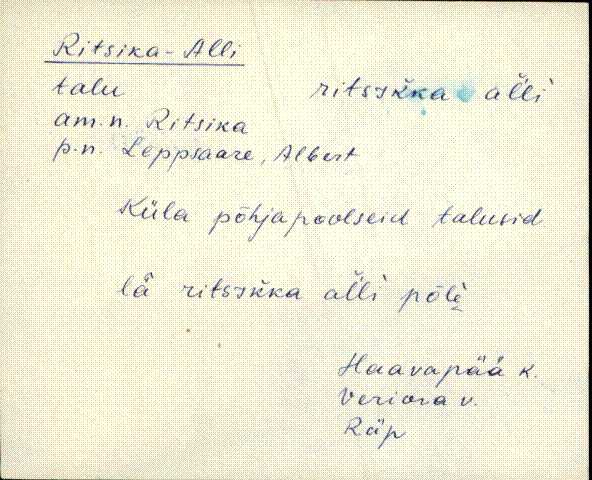 Ritsika-Alli
talu ritsikka alli
am.n. Ritsika
p.n. Leppsaare, Albert
Küla põhjapoolseid talusid
lä ritsikka alli põlè
Haavapää k.
Veriora v.
Räp